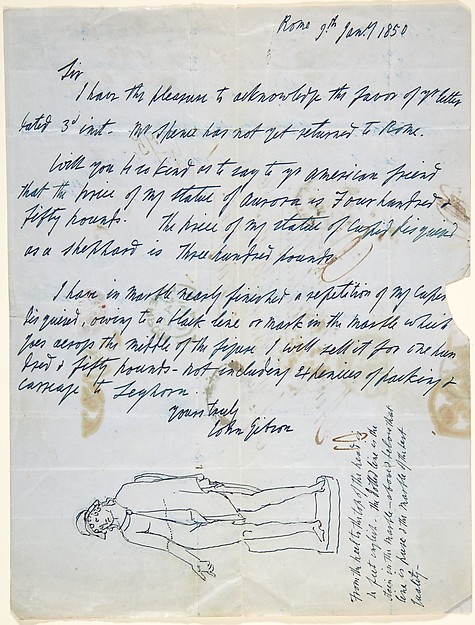 Rome 9th Jany 1850
Sir
I have the pleasure to acknowledge the favor of yr letter
dated 3d inst. Mr Spence has not yet returned to Rome.
Will you be so kind as to say to yr american friend
that the price of my statue of Aurora is Four hundred &
fifty pounds. The price of my statue of Cupid disguised
as a shepherd is Three hundred pounds
I have in marble nearly finished a repetition of my Cupid
disguised, owing to a black line or mark in the marble which
goes across the middle of the figure I will sell it for one hun
dred & fifty pounds - not including expenses of packing &
carriage to Leghorn.
Yours truly
John Gibson
From the heel to the top of the head is
4 feet english. The dotted line is the
stain in the marble - above & below that
line is pure & the marble of the best
quality -